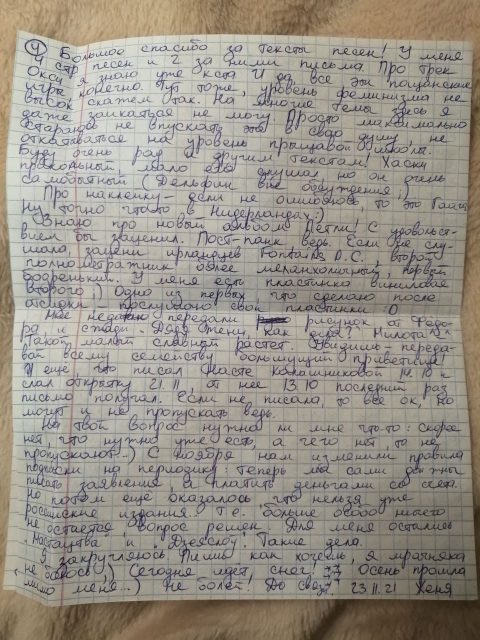 ④ Большое спасибо за тексты песен! У меня
4 стр песен и 2 за ними письма. Про трек
Окси я знаю уже кста. И да, все эти пацанские
игры конечно. Тут тоже, уровень феминизма не
высок скажем так. На многие темы здесь я
даже заикаться не могу. Просто максимально
стараюсь не впускать это в свою душу, не
откатываться на уровень прыщавой школы.
Буду очень рад и другим текстам! Хаски
прикольный, мало его слушал, но он очень
самобытный (Дельфин вне обсуждения;)
Про наклейку - если не ошибаюсь, то это Гаага.
Ну точно что-то в Нидерландах:)
Знаю про новый альбом Петли! С удовольст-
вием бы заценил. Пост-панк, ведь. Если не слу-
шала, зацени ирландцев Fontaines D.C., второй
полнометражник более меланхоличный, первый
бодренький. У меня есть пластинка виниловая
второго;) Одно из первых, что сделаю после
отсидки - послушаю свои пластинки :D
Мне недавно передали рисунок от Федо-
ра, и с тыла - Дядя Женя, как дела? Милота "
Такой малыш славный растет. Увидишь - переда-
вай всему семейству большущий приветище!
И еще, что писал Насте Калашниковой 14.10 и
слал открытку 21.11, от нее 13.10 последний раз
письмо получал. Если не писала, то все ок, но
могут и не пропускать ведь.
На твой вопрос нужно ли мне что-то: скорее
нет, что нужно уже есть, а чего нет, то не
пропускают..) С ноября нам изменили правила
подписки на периодику: теперь мы сами должны
писать заявления, а платить деньгами со счета.
Но потом еще оказалось, что нельзя уже
российские издания. Т.е. больше особо ничего
не остается, вопрос решен. Для меня остались
"Мастацтва" и "Дзеяслоў". Такие дела.
Я закругляюсь. Пиши как хочешь, я мрачняка
не боюсь;) Сегодня идет снег! Осень прошла
мимо меня...) Не болей! До связи! 23.11.21 Женя